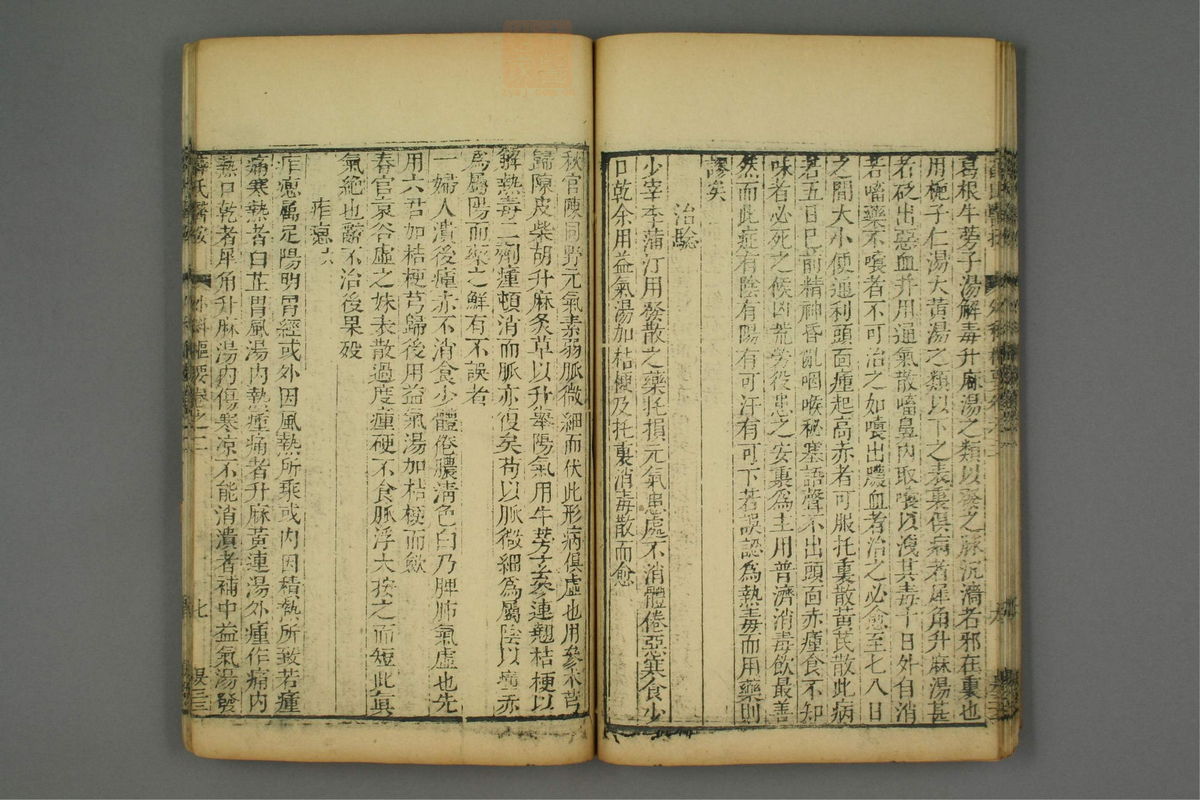 葛根牛蒡子湯解毒升麻湯之類以發之脉沉濇者邪在裏也
用梔子仁湯大黃湯之類以下之表裏俱病者犀角升麻湯甚
者砭出惡血并用通氣散嗜鼻內取嚏以洩其毒十日外自消
若嗜藥不嚏者不可治之如嚏出膿血者治之必愈至七八日
之間大小便通利頭面瘇起高赤者可服托裏散黃芪散此病
若五日已前精神昏亂咽喉秘塞語聲不出頭面赤瘇食不知
味者必死之候因荒勞役患之安裏爲主用普濟消毒飲最善
然而此症有陰有陽有可汗有可下若誤認爲熱毒而用藥則
謬矣
治驗
少宰李蒲汀用發散之藥托損元氣患處不消體倦惡寒食少
口乾余用益氣湯加桔梗及托裏消毒散而愈
秋官陳同野元氣素弱脈微細而伏此形病俱虛也用參朮芎
歸陳皮柴胡升麻炙草以升舉陽氣用牛蒡玄參連翹桔梗以
解熱毒二劑瘇頓消而脈亦復矣茍以脈微細爲屬陰以瘇赤
爲屬陽而藥之鮮有不誤者
一婦人潰後瘇赤不消食少體倦膿淸色白乃脾肺氣虛也先
用六君加桔梗芎歸後用益氣湯加桔梗而歛
春官袁谷虛之妹表散過度瘇硬不食脈浮大按之而短此真
氣絶也辭不治後果歿
痄瘜六
痄瘜屬足陽明胃經或外因風熱所乘或內因積熱所致若瘇
痛寒熱者白芷胃風湯內熱瘇痛者升麻黃連湯外瘇作痛內
熱口乾者犀角升麻湯內傷寒凉不能消潰者補中益氣湯發
薛氏醫按 外科樞要卷之二 七